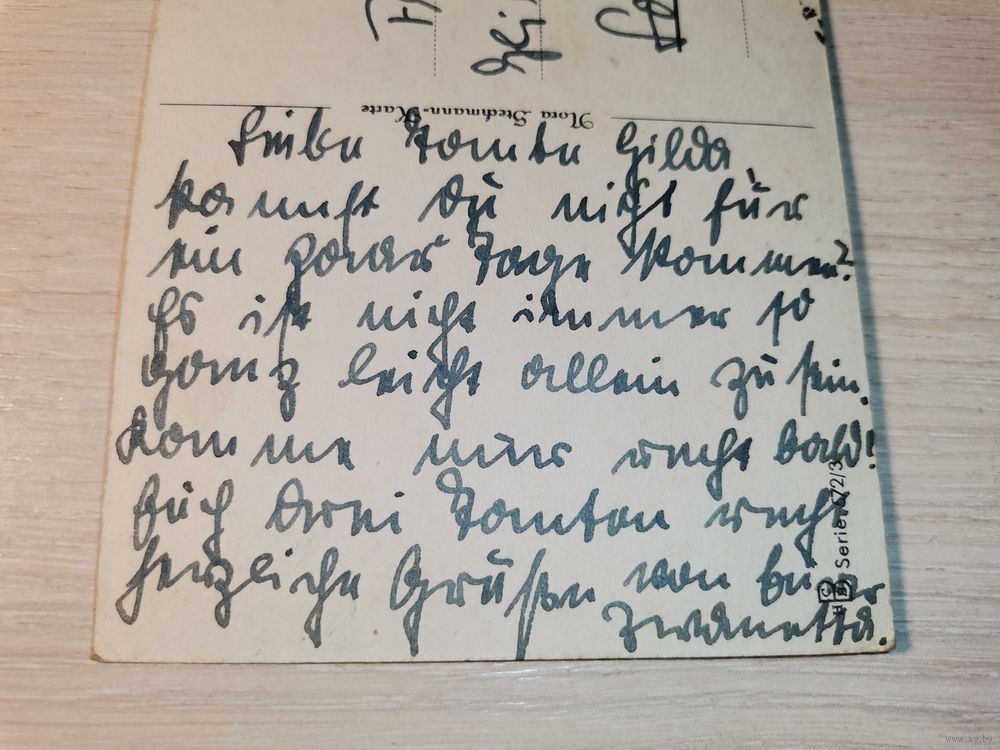 Nora Stechmann-Karte
Liebe Tante Hilda
kannst Du nicht für
ein paar Tage kommen?
Es ist nicht immer so
ganz leicht allein zu sein.
Komme nur recht bald!
Euch drei Tanten recht
herzliche Grüße von Euer
HCB Serie 672/3
www.ay.by